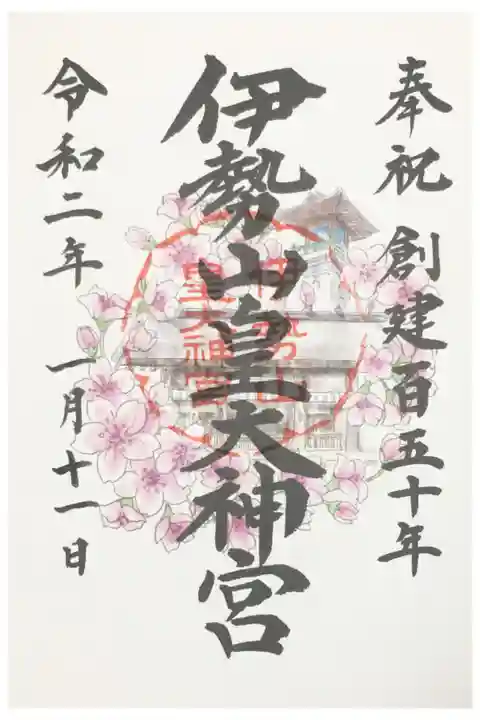 奉祝 創建百五十年
伊勢山皇大神宮
伊勢山
皇大神宮
令和二年 一月十一日